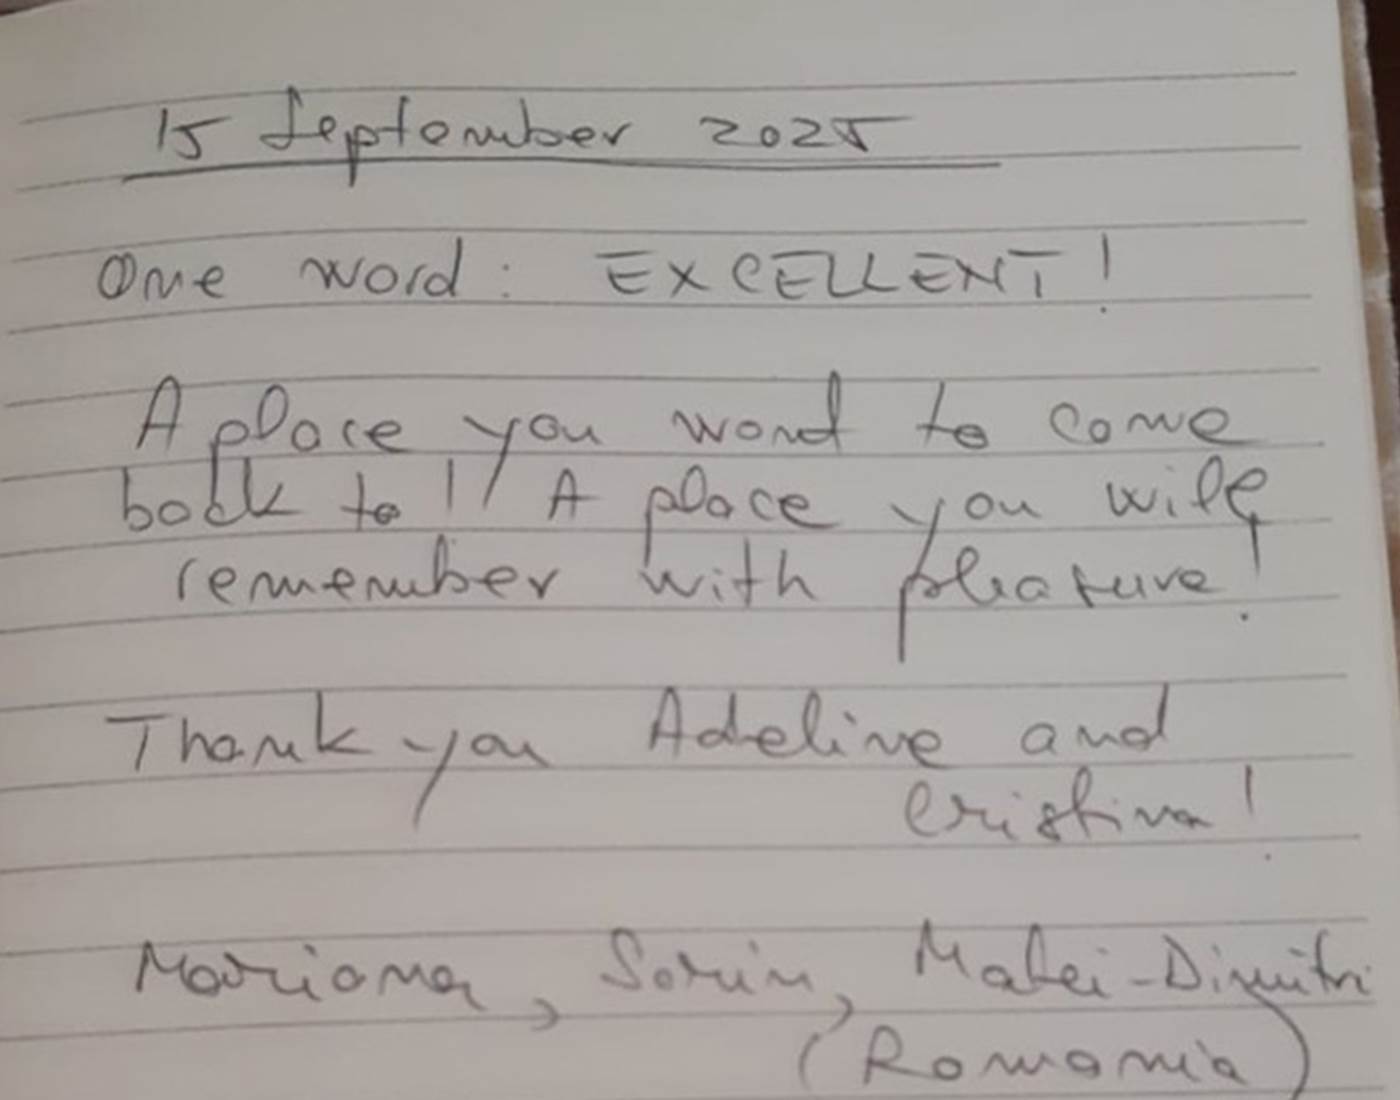 15 September 2025
One word: EXCELLENT!
A place you want to come
back to! A place you will
remember with pleasure!
Thank you Adeline and
Cristina!
Mariana, Sorin, Matei-Dimitri
(Romania)